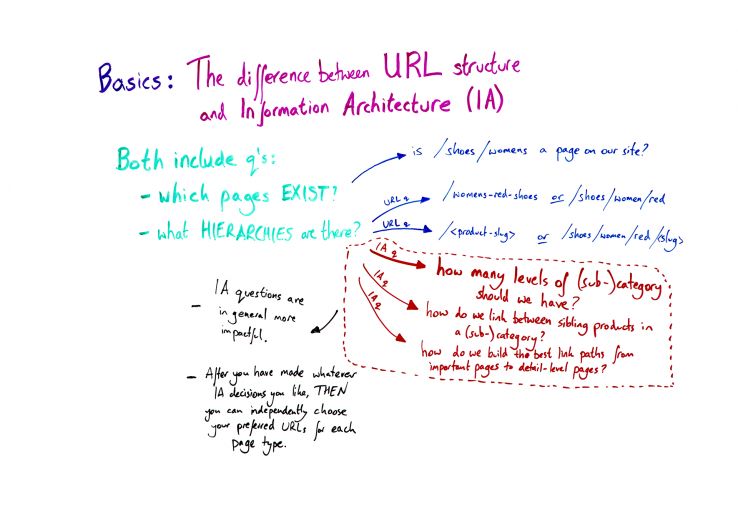 Basics: The difference between URL structure
and Information Architecture (IA)
Both include q's:
- which pages EXIST?
- what HIERARCHIES are there?
is /shoes/womens a page on our site?
URL q
/womens-red-shoes or /shoes/women/red
URL q
/<product-slug> or /shoes/women/red/<slug>
IA q
how many levels of (sub-)category
should we have?
IA q
how do we link between sibling products in
a (sub-)category?
IA q
how do we build the best link paths from
important pages to detail-level pages?
- IA questions are
in general more
impactful.
- After you have made whatever
IA decisions you like, THEN
you can independently choose
your preferred URLs for each
page type.